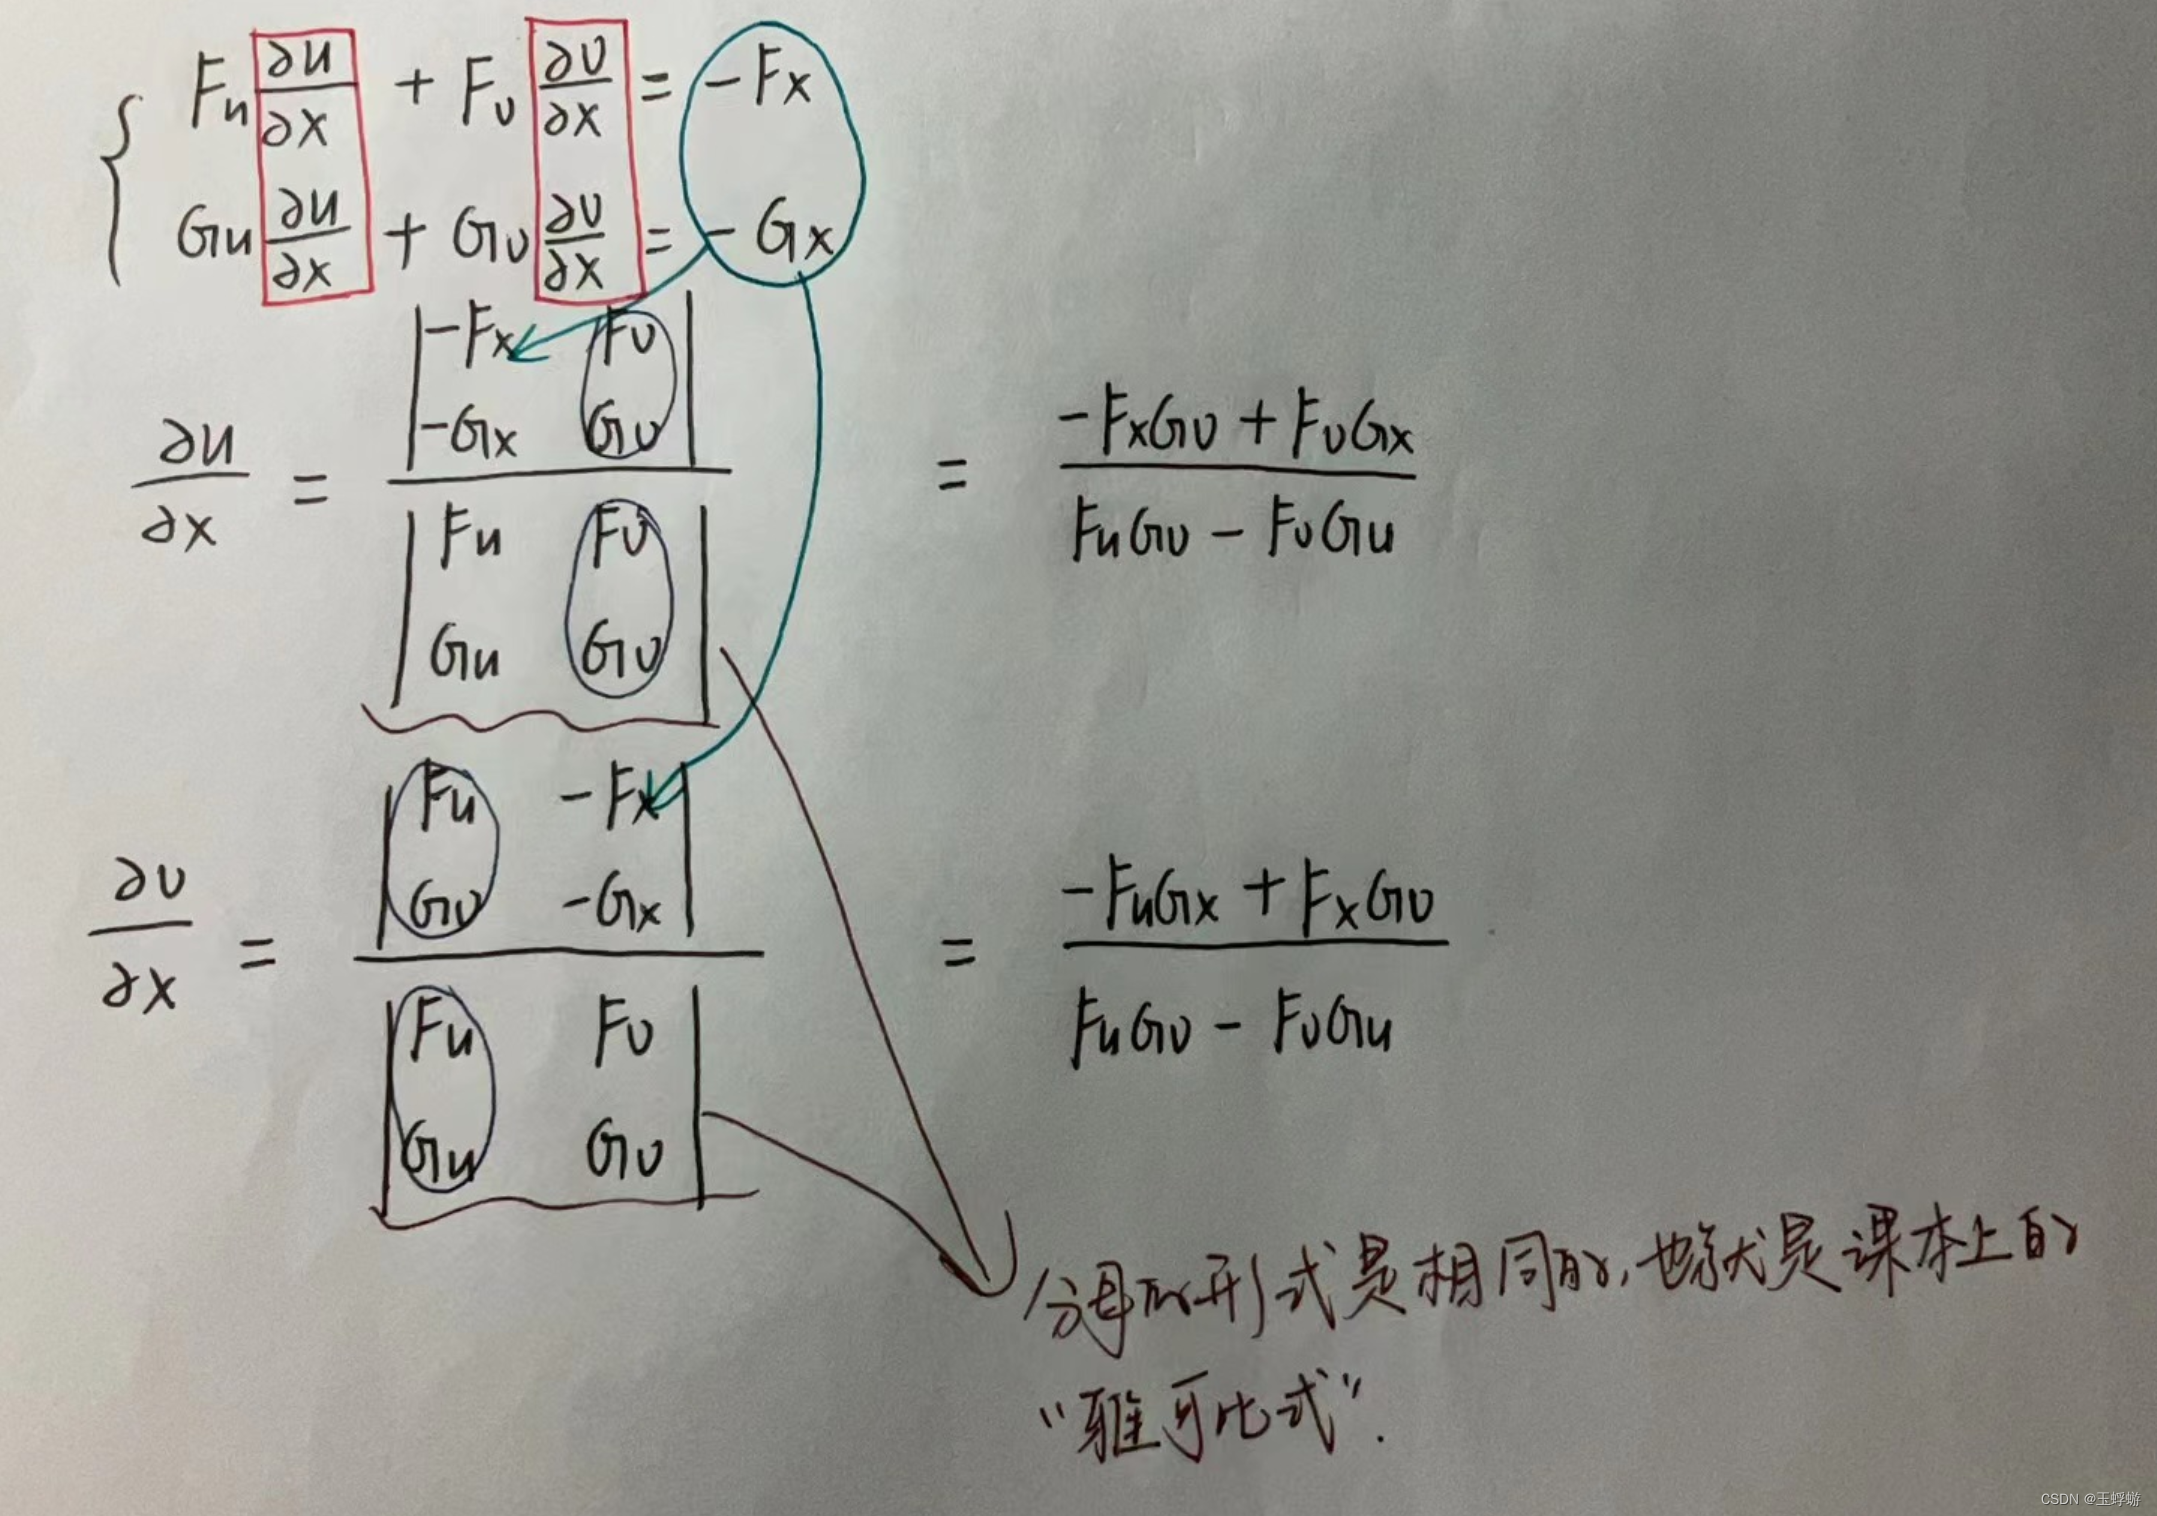 { Fu ∂u/∂x + Fv ∂v/∂x = -Fx
Gu ∂u/∂x + Gv ∂v/∂x = -Gx
∂u/∂x = |-Fx Fv; -Gx Gv| / |Fu Fv; Gu Gv| = (-FxGv + FvGx) / (FuGv - FvGu)
∂v/∂x = |Fu -Fx; Gv -Gx| / |Fu Fv; Gu Gv| = (-FuGx + FxGv) / (FuGv - FvGu)
分母的形式是相同的,也就是课本上的
“雅可比式”.
CSDN @玉蜉蝣